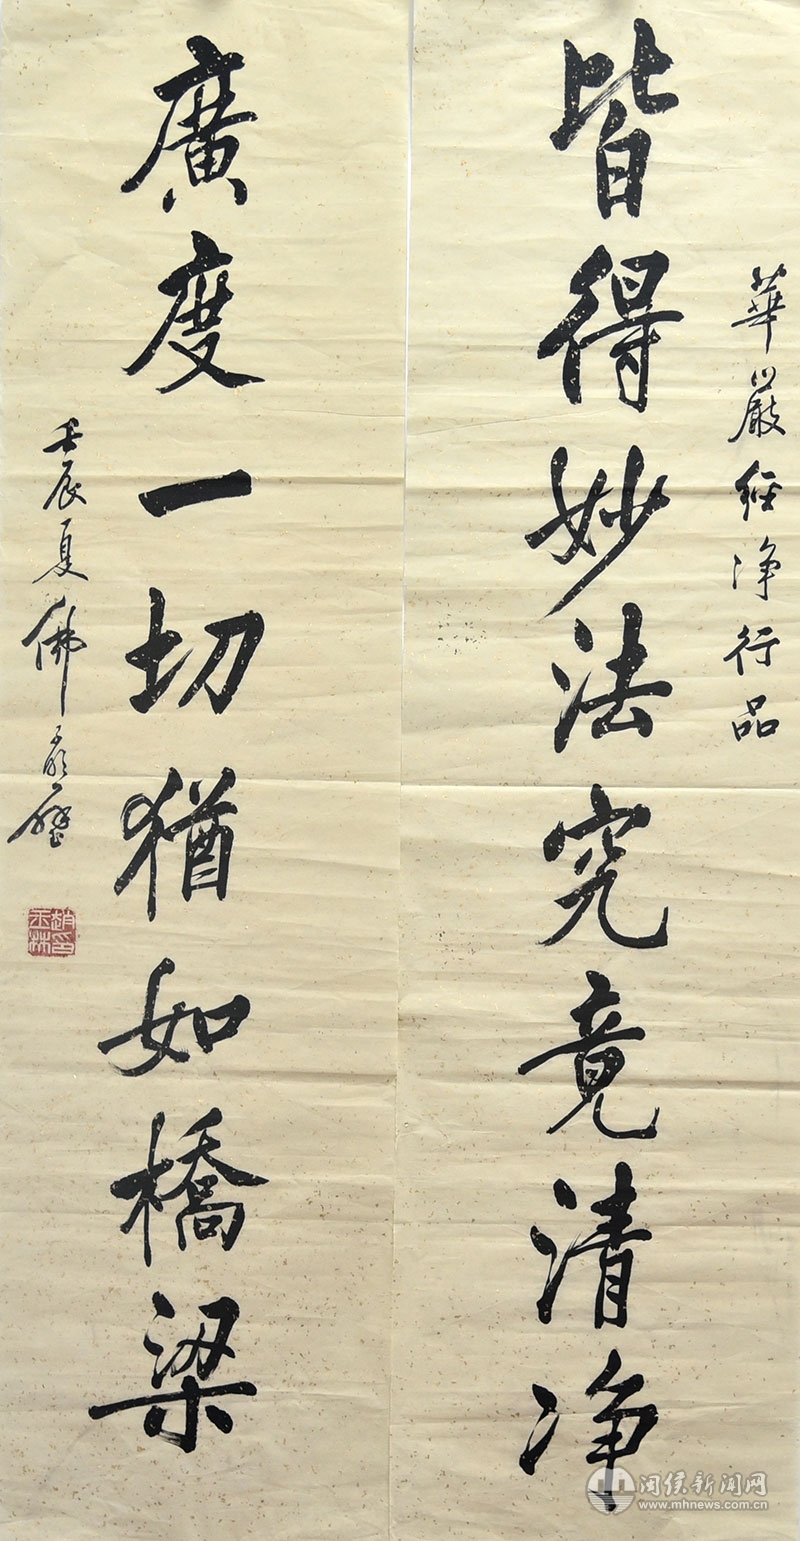 華嚴經净行品
皆得妙法究竟清净
廣度一切猶如橋梁
壬辰夏佛
趙印玉林
闽侯新闻网
www.mhnews.com.cn